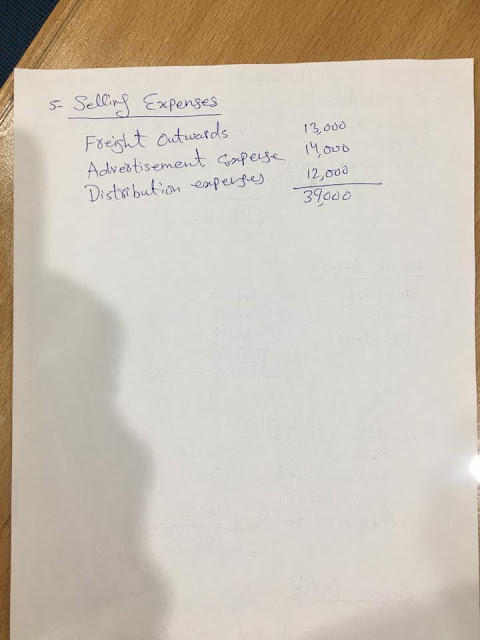 5- Selling Expenses
Freight Outwards 13,000
Advertisement expense 14,000
Distribution expenses 12,000
39,000